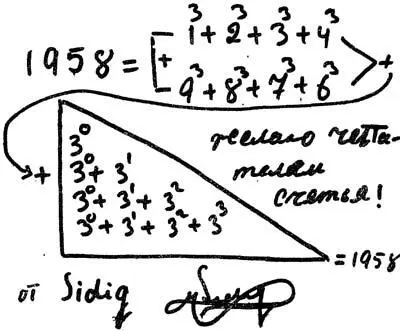 1³ + 2³ + 3³ + 4³
1958 = + +
9³ + 8³ + 7³ + 6³
3⁰
+ 3⁰ + 3¹
3⁰ + 3¹ + 3²
3⁰ + 3¹ + 3² + 3³
= 1958
желаю чита-
телям
счастья!
от Sidiq